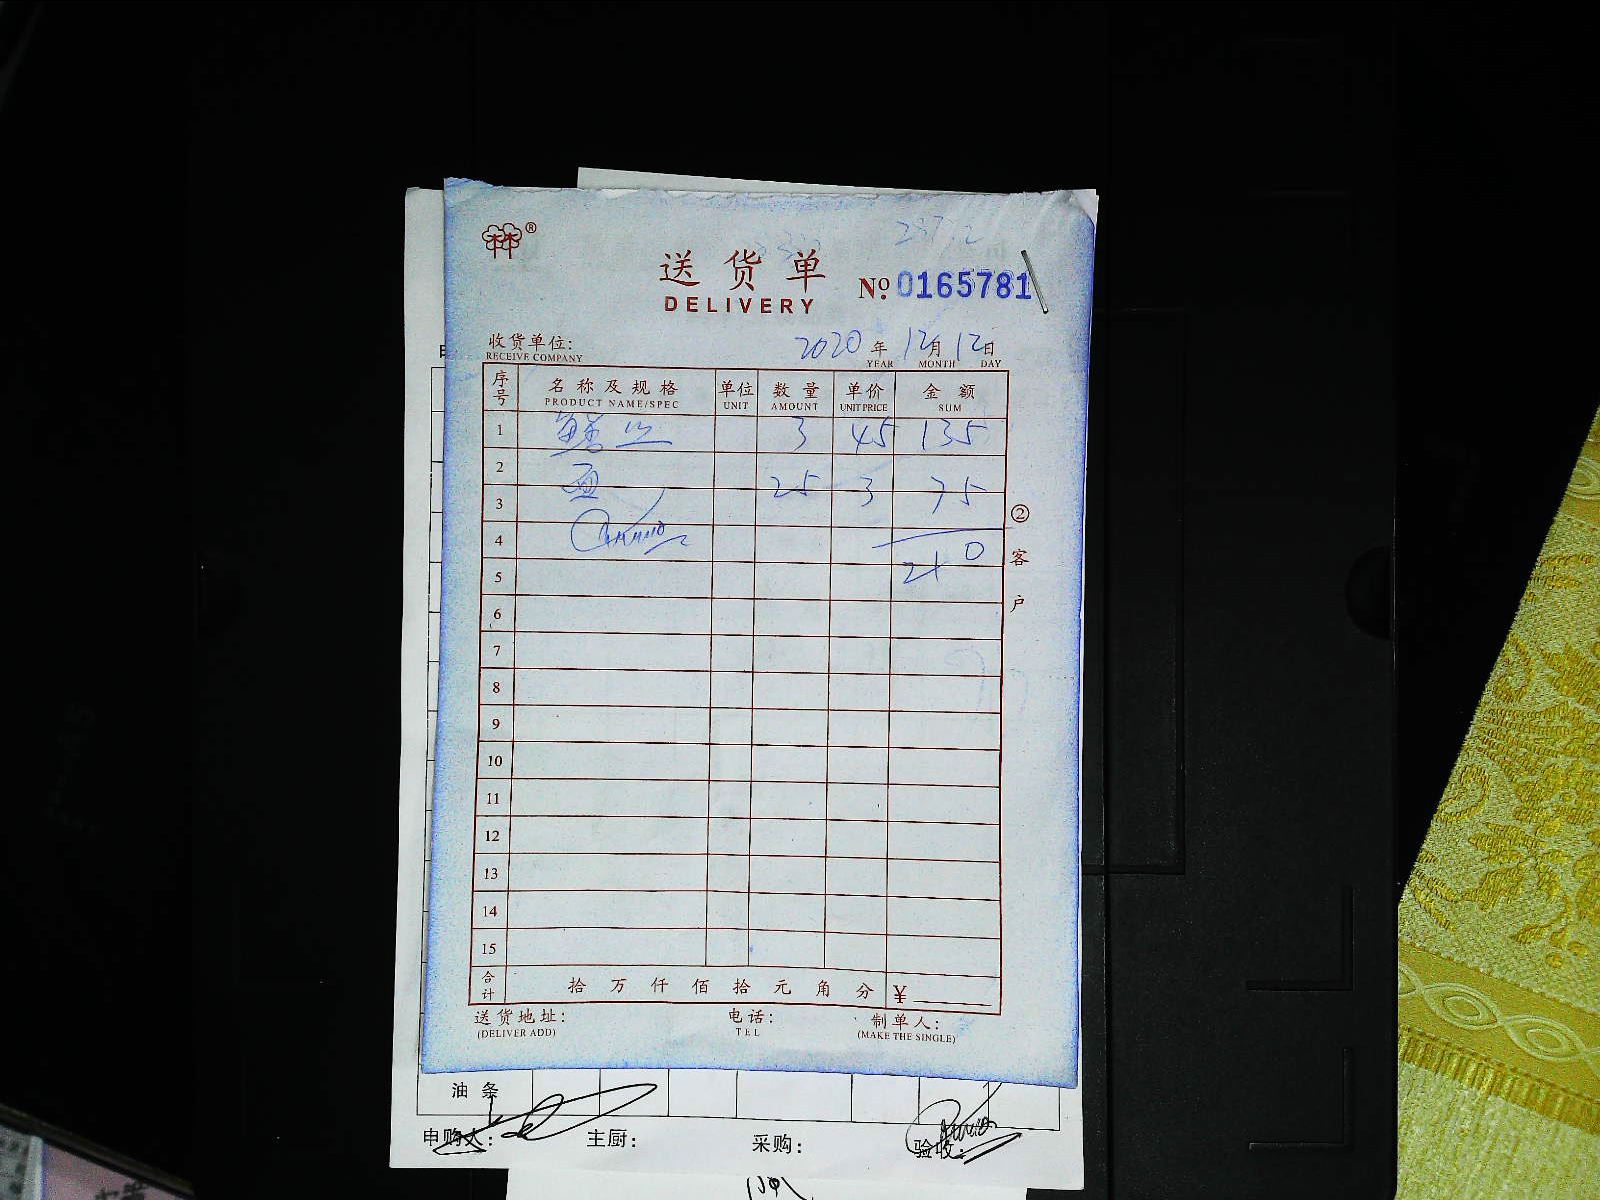 林®
送货单
DELIVERY
Nº 0165781
收货单位:
RECEIVE COMPANY
2020 年 12 月 12 日
YEAR MONTH DAY
序号 名称及规格 单位 数量 单价 金额
PRODUCT NAME/SPEC UNIT AMOUNT UNIT PRICE SUM
1 鳝丝 3 45 135
2 面 25 3 75
3
4 210
5
6
7
8
9
10
11
12
13
14
15
合计 拾 万 仟 佰 拾 元 角 分 ¥
送货地址: 电话: 制单人:
(DELIVER ADD) TEL (MAKE THE SINGLE)
② 客户
油条
申购人: 主厨: 采购: 验收: